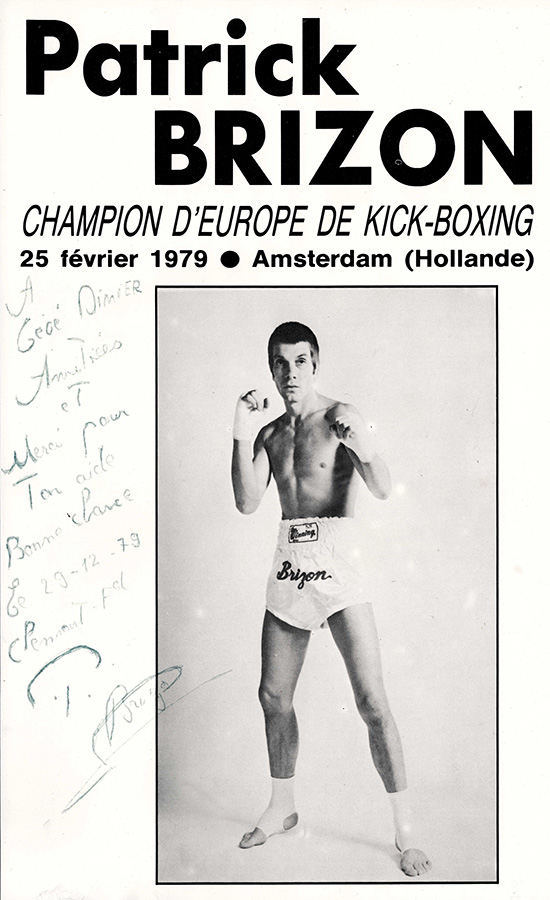 Patrick
BRIZON
CHAMPION D'EUROPE DE KICK-BOXING
25 février 1979 ● Amsterdam (Hollande)
A
Gégé Dimier
Amitiées
et
Merci pour
Ton aide
Bonne chance
Le 29-12-79
P.
Brizon
Winning
Brizon